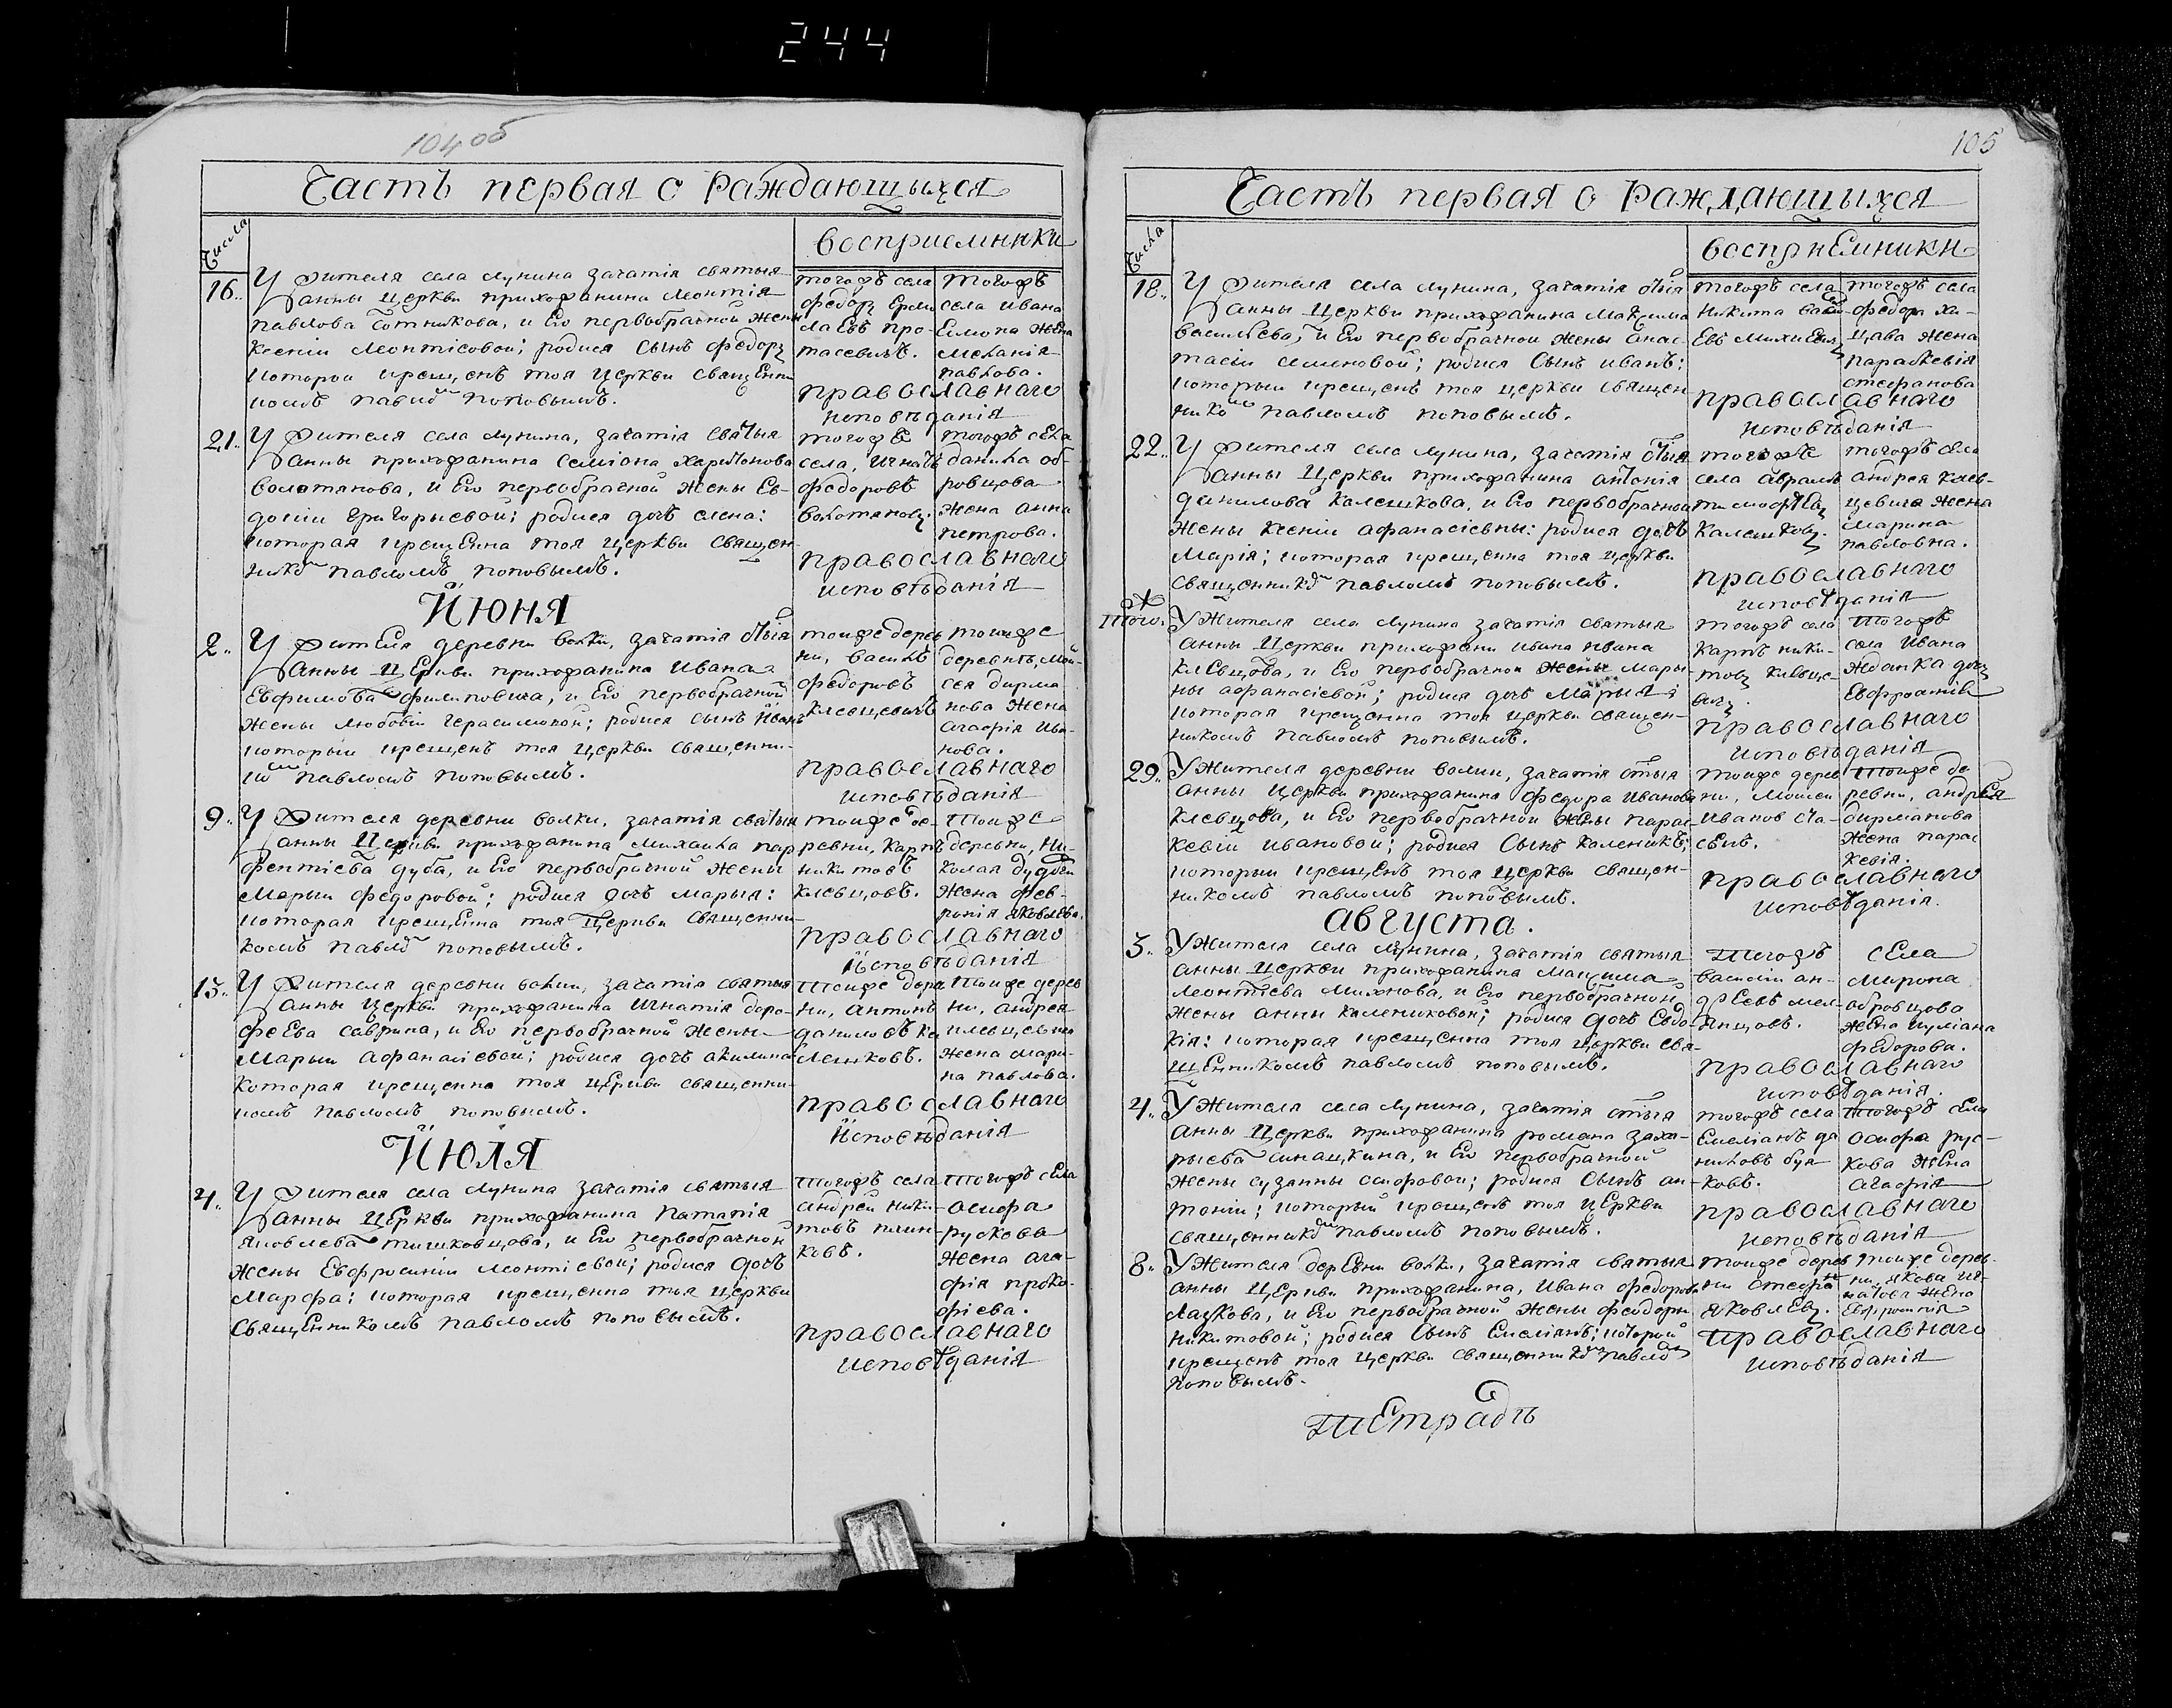 244
104 об
Часть первая о Раждающыхся
Числа
восприемники
16..
У жителя села лунина зачатія святыя
анны церкви прихожанина леонтія
павлова Сотникова, и Его первобрачной жены
ксеніи леонтіевой; родися сынъ федоръ
которой крещенъ тоя церкви священни
комъ павломъ поповымъ.
тогожъ села
федоръ Ерми
лаевъ про-
тасевичъ.
тогожъ
села ивана
жена
меланія
павлова.
православнаго
исповѣданія
21..
У жителя села лунина, зачатія святыя
анны прихожанина семіона харитонова
волотянова, и Его первобрачной жены Ев-
докіи григорьевой; родися дочь елена:
которая крещенна тоя церкви священ-
никомъ павломъ поповымъ.
тогожъ
села, игнатъ
федоровъ
тогожъ села
данила об-
ровцова
жена анна
петрова.
православнаго
исповѣданія
Июня
2..
У жителя деревни волки, зачатія стыя
анны церкви прихожанина ивана
Евфимова филиповича, и Его первобрачной
жены любовіи герасимовой; родися сынъ иванъ
которыи крещенъ тоя церкви священни-
комъ павломъ поповымъ.
тоижедерев
ни, василь
федоровъ
клевцевичъ
тоиже
деревнѣ, мои-
сея дирма
нова жена
агафія ива-
нова.
православнаго
исповѣданія
9..
У жителя деревни волки, зачатія святыя
анны церкви прихожанина михаила пар
фентіева дуба, и Его первобрачной жены
марьи федоровой; родися дочь марья:
которая крещенна тоя церкви священни-
комъ павломъ поповымъ.
тоиже де-
ревни, карпъ
никитовъ
клевцовъ.
тоиже
деревни, ни-
колая
жена фев-
ронія яковлева.
православнаго
исповѣданія
15..
У жителя деревни волки, зачатія святыя
анны церкви прихожанина игнатія доро-
феева саврина, и Его первобрачной жены
марьи афанасіевой; родися дочь акилина
которая крещенна тоя церкви священни-
комъ павломъ поповымъ.
тоиже дерев
ни, антонъ
даниловъ ка
лешковъ.
тоиже дерев
ни, андрея
клевцевича
жена мари-
на павлова.
православнаго
исповѣданія
Июля
4..
У жителя села лунина зачатія святыя
анны церкви прихожанина патапія
яковлева тишковцова, и Его первобрачной
жены Евфросиніи леонтіевой; родися дочь
марфа: которая крещенна тоя церкви
священникомъ павломъ поповымъ.
тогожъ села
андрей ники-
товъ
ковъ.
тогожъ села
осифа
рускова
жена ага-
фія проко-
фіева.
православнаго
исповѣданія
105
Часть первая о Раждающыхся
Числа
восприемники
18..
У жителя села лунина, зачатія стыя
анны церкви прихожанина максима
васильева, и Его первобрачной жены анас-
тасіи семеновой; родися сынъ иванъ:
которыи крещенъ тоя церкви священ
никомъ павломъ поповымъ.
тогожъ села
никита
тогожъ села
федора
жена
параскевія
стефанова
православнаго
исповѣданія
22..
У жителя села лунина, зачатія стыя
анны церкви прихожанина антонія
данилова калешкова, и Его первобрачной
жены ксеніи афанасіевны: родися дочь
марія; которая крещенна тоя церкви
священникомъ павломъ поповымъ.
тогожъ
села авраамъ
калешковъ.
тогожъ села
андрея клев-
цевича жена
марина
павловна.
православнаго
исповѣданія
тогож.
У жителя села лунина зачатія святыя
анны церкви ивана ивана
клевцова, и Его первобрачной жены мары-
ны афанасіевой; родися дочь марья:
которая крещенна тоя церкви священ-
никомъ павломъ поповымъ.
тогожъ села
карпъ ники-
товъ клевце-
вичъ.
тогожъ
села ивана
жданка дочь
Евфросинія
православнаго
исповѣданія
29..
У жителя деревни волки, зачатія стыя
анны церкви прихожанина федора иванова
клевцова, и Его первобрачной жены парас
кевіи ивановой; родися сынъ каленикъ;
которыи крещенъ тоя церкви священ-
никомъ павломъ поповымъ.
тоиже дерев
ни, моисеи
иванов
тоиже де
ревни, андрея
дирманова
жена парас
кевія.
православнаго
исповѣданія.
августа.
3..
У жителя села лунина, зачатія святыя
анны церкви прихожанина максима
леонтіева михнова, и Его первобрачной
жены анны калениковой; родися дочь Евдо-
кія: которая крещенна тоя церкви свя-
щенникомъ павломъ поповымъ.
тогожъ
василіи ан-
дреевъ
села
мирона
обровцова
жена иуліана
федорова.
православнаго
исповѣданія.
4..
У жителя села лунина, зачатія стыя
анны церкви прихожанина романа заха-
рьева синацкина, и Его первобрачной
жены сузанны осифовой; родися сынъ ан-
тоніи; которыи крещенъ тоя церкви
священникомъ павломъ поповымъ.
тогожъ села
Емеліанъ да
ниловъ
ковъ.
тогожъ села
осифа рус-
кова жена
агафія
православнаго
исповѣданія
8..
У жителя деревни волки, зачатія святыя
анны церкви прихожанина, ивана федорова
лацкова, и Его первобрачной жены феодоры
никитовой; родися сынъ Емеліянъ; которой
крещенъ тоя церкви священникомъ павломъ
поповымъ.
тоиже дерев
ни стефанъ
яковлевъ.
тоиже дерев-
ни, якова иг-
натова жена
Евфросинія
православнаго
исповѣданія
тетрадь